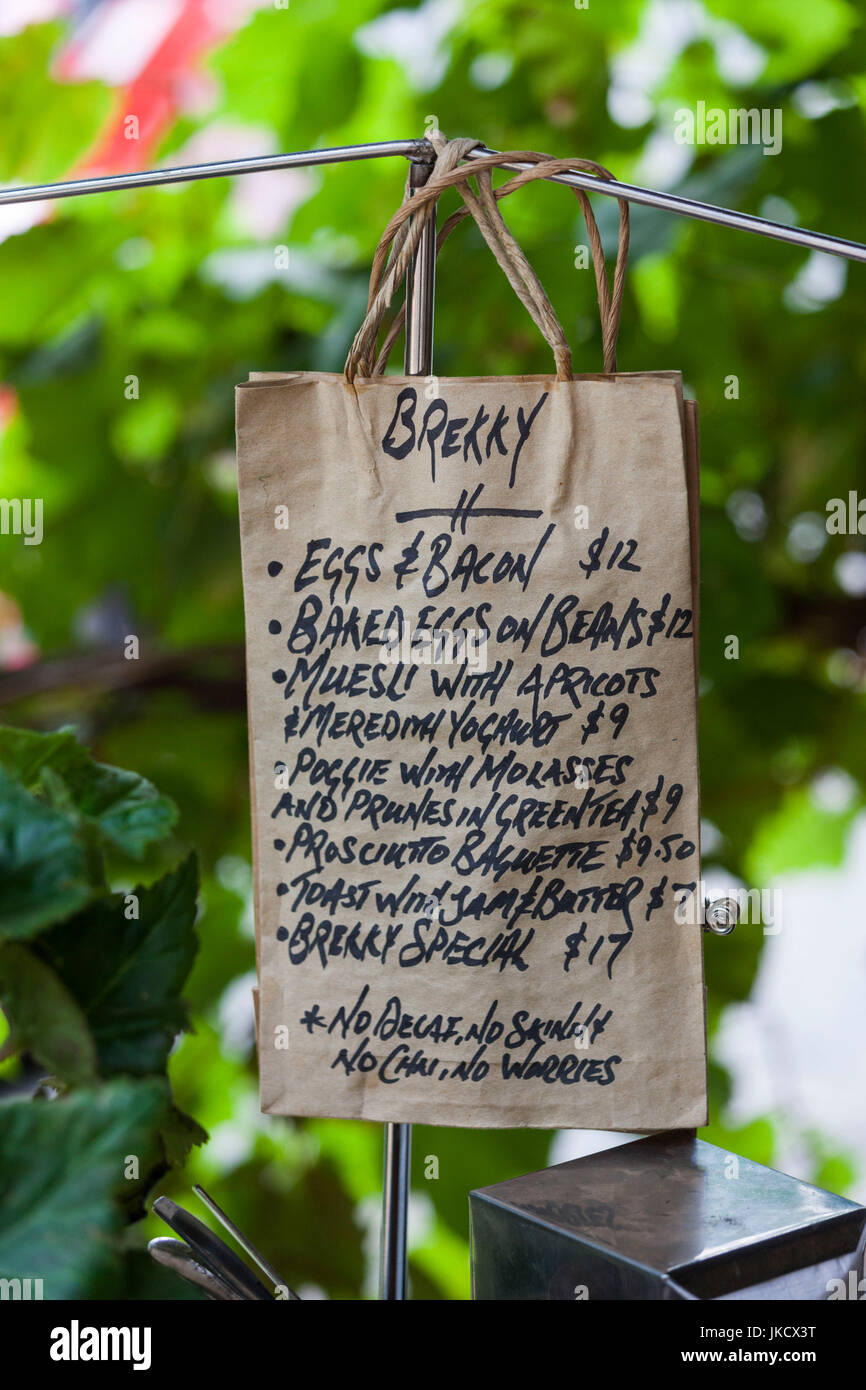 BREKKY
• EGGS & BACON $12
• BAKED EGGS ON BEANS $12
• MUESLI WITH APRICOTS
& MEREDITH YOGHURT $9
• POGGIE WITH MOLASSES
AND PRUNES IN GREEN TEA $9
• PROSCIUTTO BAGUETTE $9.50
• TOAST WITH JAM & BUTTER $7
• BREKKY SPECIAL $17
* NO DECAF, NO SKINNY
NO CHAI, NO WORRIES
a
alamy
alamy
Image ID: JKCX3T
www.alamy.com